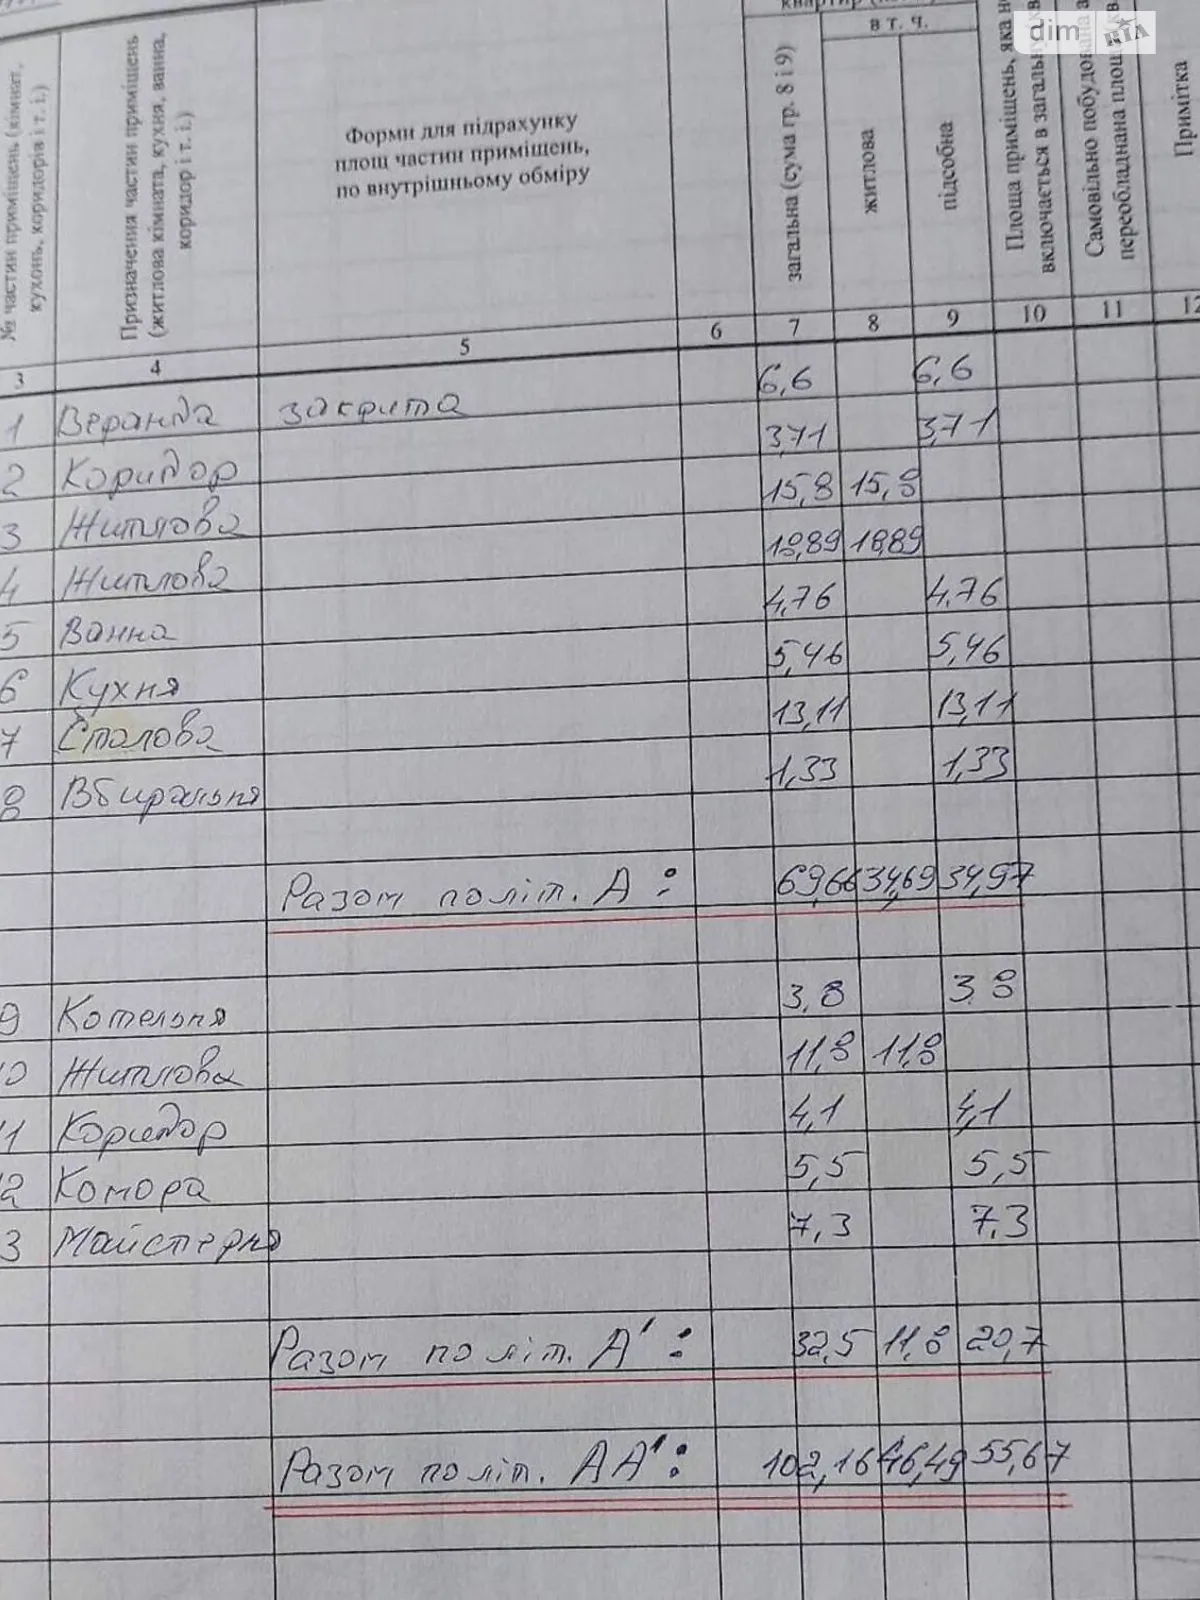 dim РІА
в т. ч.
№ частин приміщень (кімнат, кухонь, коридорів і т. і.)
Призначення частин приміщень (житлова кімната, кухня, ванна, коридор і т. і.)
Форми для підрахунку
площ частин приміщень,
по внутрішньому обміру
загальна (сума гр. 8 і 9)
житлова
підсобна
Площа приміщень, яка
включається в загальну
Самовільно побудована
переобладнана площа
Примітка
3 4 5 6 7 8 9 10 11 12
1 Веранда закрита 6,6 6,6
2 Коридор 3,71 3,71
3 Житлова 15,8 15,8
4 Житлова 18,89 18,89
5 Ванна 4,76 4,76
6 Кухня 5,46 5,46
7 Столова 13,11 13,11
8 Вбиральня 1,33 1,33
Разом по літ. А : 69,66 34,69 34,97
9 Котельня 3,8 3.8
0 Житлова 11,8 11,8
1 Коридор 4,1 4,1
2 Комора 5,5 5,5
3 Майстерня 7,3 7,3
Разом по літ. А' : 32,5 11,8 20,7
Разом по літ. АА' : 102,16 46,49 55,67